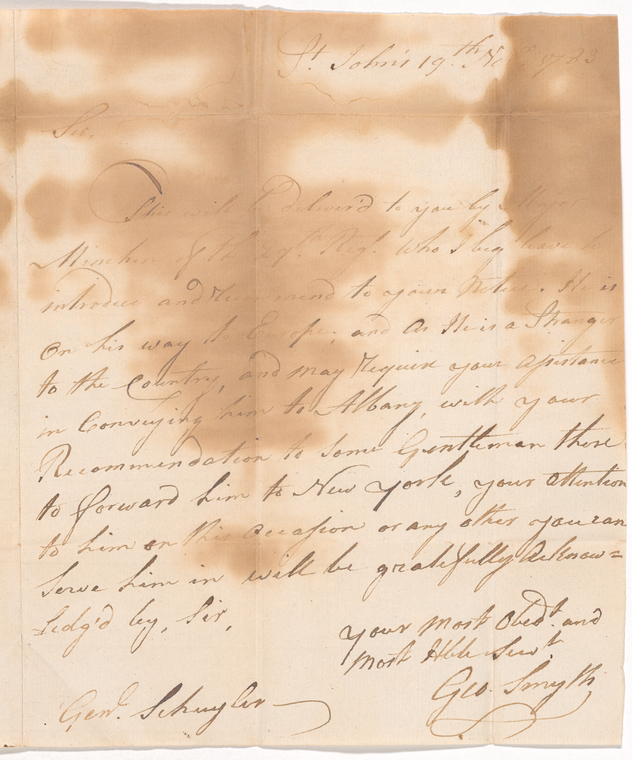 St. John's 19th Nov. 1783
Sir,
This will be deliver'd to you by Major
Minchin of the 29th Regt. who I beg leave to
introduce and Recommend to your Notice. He is
on his way to Europe, and as He is a Stranger
to the Country, and may require your assistance
in Conveying him to Albany, with your
Recommendation to some Gentleman there
to forward him to New York, your attention
to him on this Occasion or any other you can
Serve him in will be gratefully Acknow=
ledg'd by, Sir,
your most Obedt. and
most Hble Servt.
Geo. Smyth
Genl. Schuyler